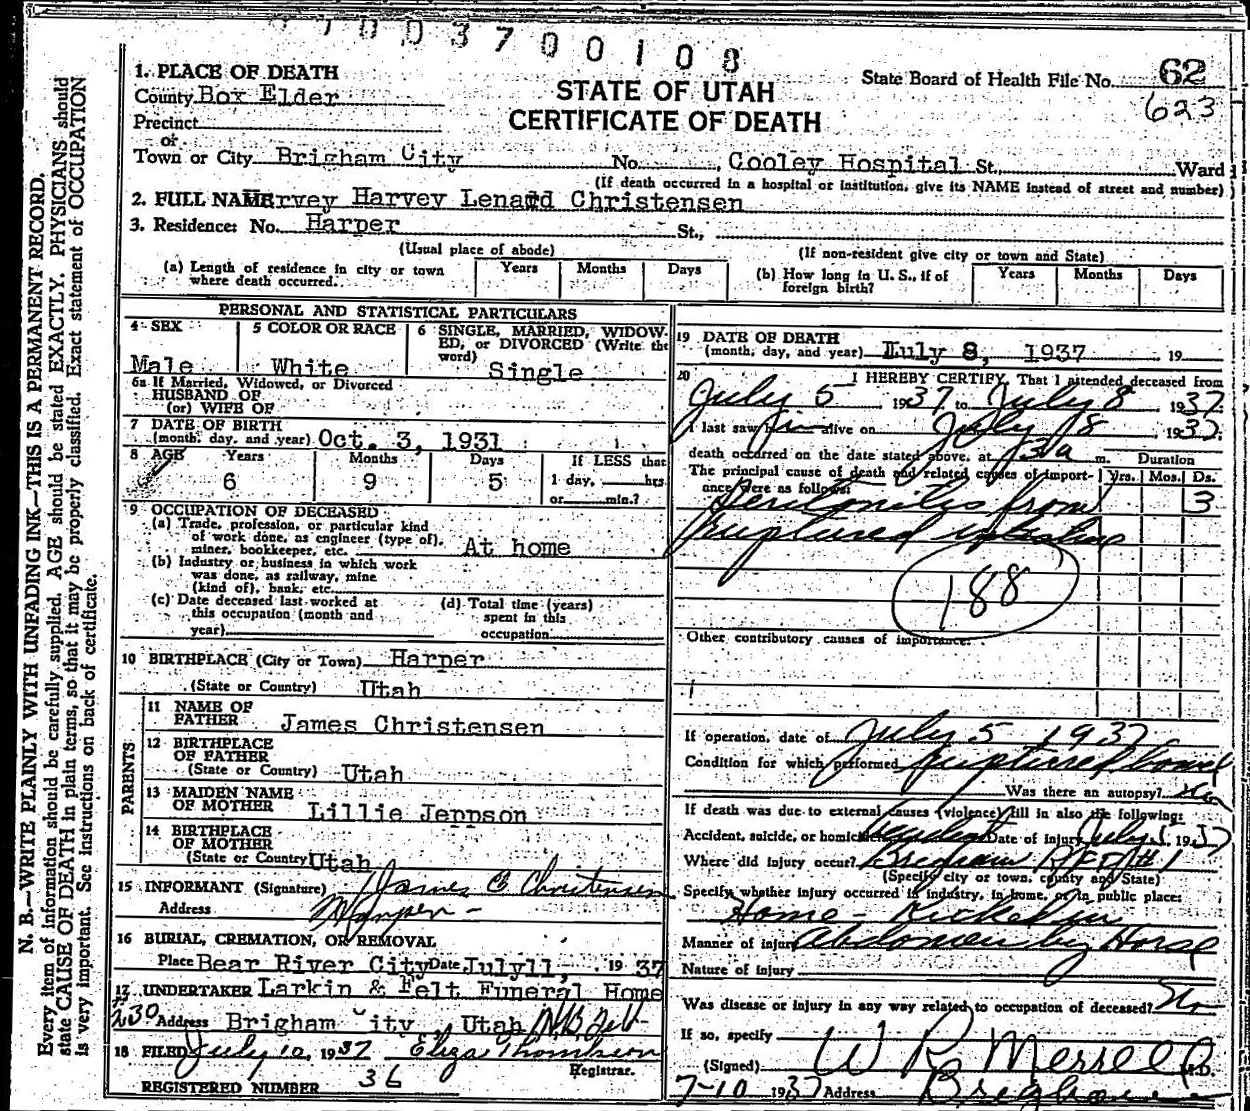 1003700108
1. PLACE OF DEATH
County Box Elder
STATE OF UTAH
CERTIFICATE OF DEATH
State Board of Health File No. 62
623
Precinct
or
Town or City Brigham City No. , Cooley Hospital St., Ward
(If death occurred in a hospital or institution, give its NAME instead of street and number)
2. FULL NAME Harvey Lenard Christensen
3. Residence: No. Harper St.,
(Usual place of abode) (If non-resident give city or town and State)
(a) Length of residence in city or town where death occurred. Years Months Days
(b) How long in U. S., if of foreign birth? Years Months Days
PERSONAL AND STATISTICAL PARTICULARS
4 SEX Male
5 COLOR OR RACE White
6 SINGLE, MARRIED, WIDOWED, or DIVORCED (Write the word) Single
6a If Married, Widowed, or Divorced
HUSBAND OF
(or) WIFE OF
7 DATE OF BIRTH
(month, day, and year) Oct. 3, 1931
8 AGE Years Months Days If LESS than
6 9 5 1 day, hrs.
or min.?
9 OCCUPATION OF DECEASED
(a) Trade, profession, or particular kind
of work done, as engineer (type of),
miner, bookkeeper, etc. At home
(b) Industry or business in which work
was done, as railway, mine
(kind of), bank, etc.
(c) Date deceased last worked at
this occupation (month and
year)
(d) Total time (years)
spent in this
occupation
10 BIRTHPLACE (City or Town) Harper
(State or Country) Utah
PARENTS
11 NAME OF
FATHER James Christensen
12 BIRTHPLACE
OF FATHER
(State or Country) Utah
13 MAIDEN NAME
OF MOTHER Lillie Jeppson
14 BIRTHPLACE
OF MOTHER
(State or Country) Utah
15 INFORMANT (Signature) James C Christensen
Address
16 BURIAL, CREMATION, OR REMOVAL
Place Bear River City Date July 11, 1937
17 UNDERTAKER Larkin & Felt Funeral Home
#230 Address Brigham City, Utah
18 FILED July 10, 1937 Eliza Thompson
Registrar.
REGISTERED NUMBER 36
19 DATE OF DEATH
(month, day, and year) July 8, 1937 , 19
20 I HEREBY CERTIFY, That I attended deceased from
July 5 1937 to July 8 1937.
I last saw him alive on July 8, 1937.
death occurred on the date stated above, at m. Duration
The principal cause of death and related causes of importance were as follows: Yrs. Mos. Ds.
Peritonitis from 3
ruptured intestine
188
Other contributory causes of importance:
If operation, date of July 5 1937
Condition for which performed Ruptured bowel
Was there an autopsy? No
If death was due to external causes (violence) fill in also the following:
Accident, suicide, or homicide? Accident Date of injury July 5 1937
Where did injury occur? Brigham
(Specify city or town, county and State)
Specify whether injury occurred in industry, in home, or in public place:
Home - Kicked in
Manner of injury Abdomen by Horse
Nature of injury
Was disease or injury in any way related to occupation of deceased? No
If so, specify
(Signed) W R Merrell M.D.
7-10 1937 Address Brigham
N. B.—WRITE PLAINLY WITH UNFADING INK—THIS IS A PERMANENT RECORD.
Every item of information should be carefully supplied. AGE should be stated EXACTLY. PHYSICIANS should
state CAUSE OF DEATH in plain terms, so that it may be properly classified. Exact statement of OCCUPATION
is very important. See instructions on back of certificate.